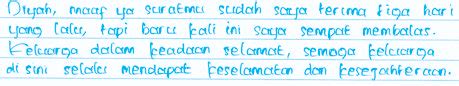 Diyah, maaf ya suratmu sudah saya terima tiga hari
yang lalu, tapi baru kali ini saya sempat membalas.
Keluarga dalam keadaan selamat, semoga keluarga
di sini selalu mendapat keselamatan dan kesejahteraan.